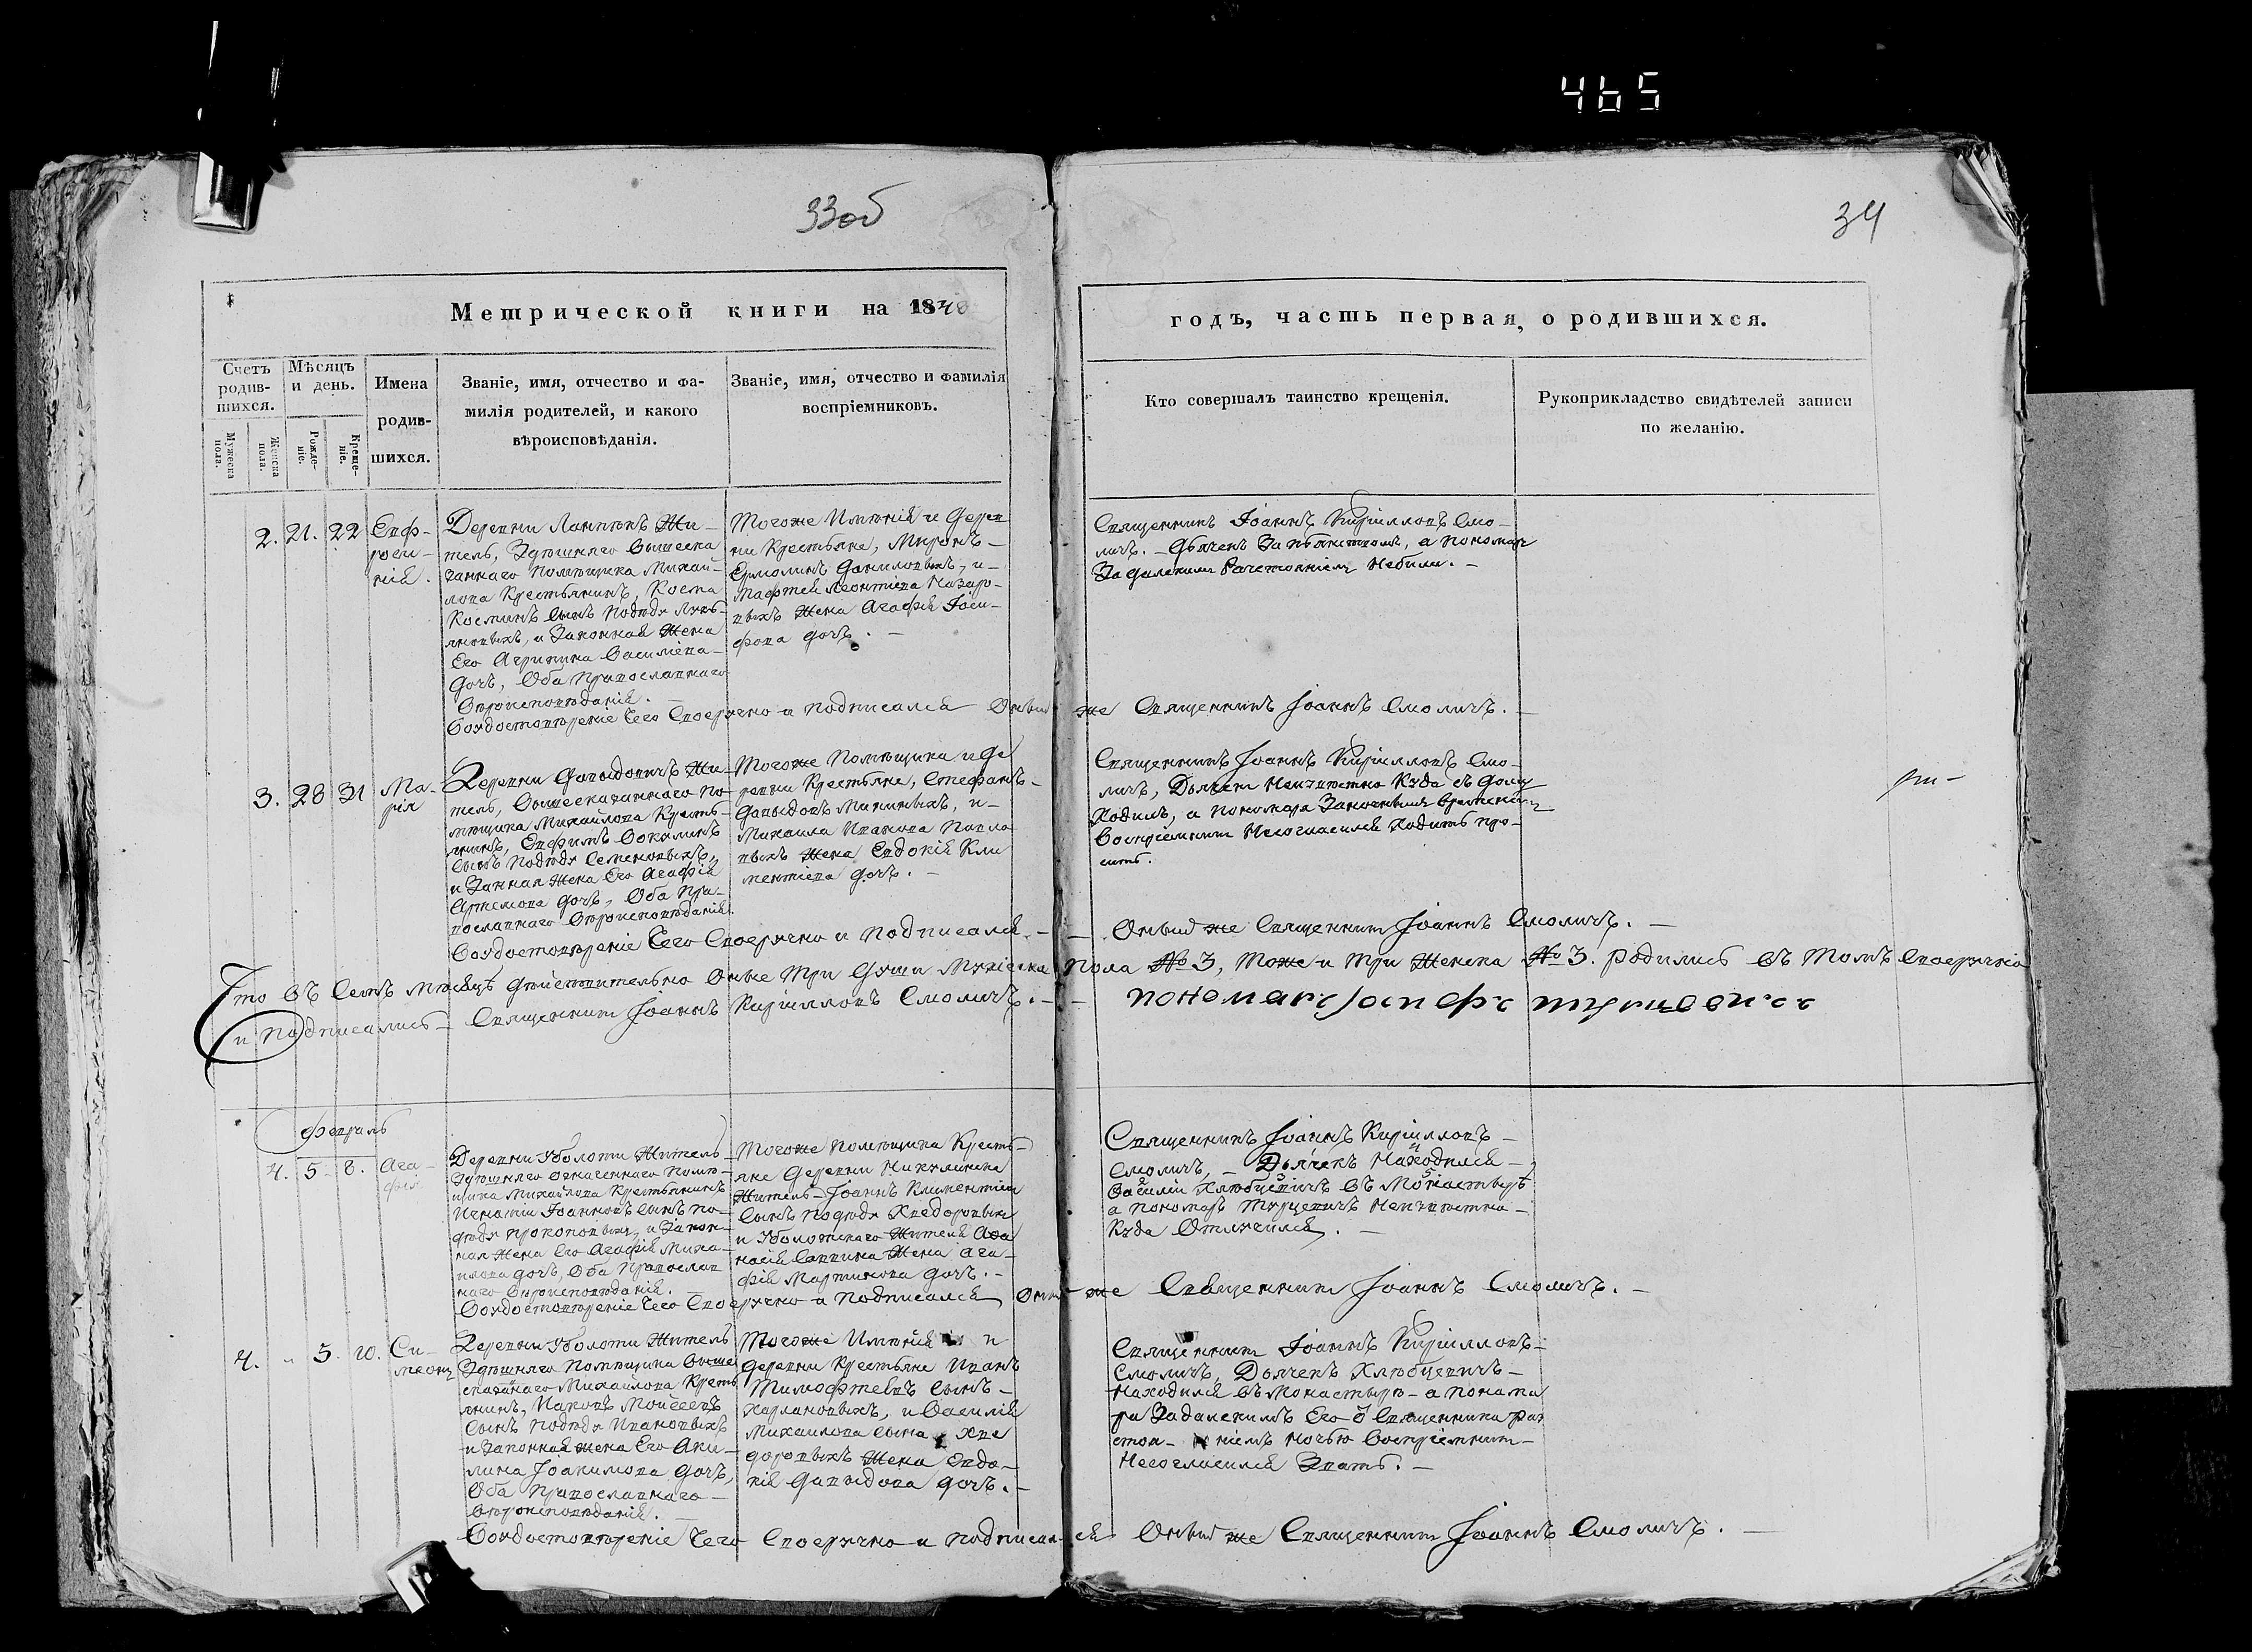 465
33об
34
Метрической книги на 1840
годъ, часть первая, о родившихся.
Счетъ родив-шихся.
Мужеска пола.
Женска пола.
Мѣсяцъ и день.
Рожде-ніе.
Креще-ніе.
Имена
родив-
шихся.
Званіе, имя, отчество и фа-
милія родителей, и какого
вѣроисповѣданія.
Званіе, имя, отчество и фамилія
воспріемниковъ.
Кто совершалъ таинство крещенія.
Рукоприкладство свидѣтелей записи
по желанію.
2. 21. 22
Евф-
роси-
нія.
Деревни Жи-
тель, Здѣшняго Вышеска
заннаго помѣщика Михай-
лова Крестьянинъ, Косма
Косминъ сынъ подъдя
и Законная Жена
Его Агрипина Василіева
дочъ, Оба Православнаго
Вѣроисповѣданія.
Тогоже Имѣнія и дерев
ни Крестьяне, Миронъ
Ермолинъ Даниловыхъ, и
Леонтіева Назаро-
выхъ Жена Агафія Іоси-
фова дочъ.
Священникъ Іоаннъ Кириллов Смо-
личъ. Дьячекъ За пьянством, а пономар
За далеким Разстояніем Небыли.
Воудостовѣреніе Чего Своеручно и подписался Оный же Священникъ Іоаннъ Смоличъ.
3. 28 31
Ма-
рія
Деревни Давыдовичъ Жи-
тель, Вышесказаннаго По-
мѣщика Михайлова Кресть-
янинъ, Евфимъ
сынъ подъдя Семеновыхъ,
и Законная Жена Его Агафія
Артемова дочъ, Оба Пра-
вославнаго Вѣроисповѣданія.
Тогоже Помѣщика и де
ревни Крестьяне, Стефанъ
Давыдовъ Мининыхъ, и
Михаила Иванова Павло
выхъ Жена Евдокія Кли
ментіева дочъ.
Священникъ Іоаннъ Кириллов Смо-
личъ, Дьячекъ Неизвѣстно Куда съ дому
Ходилъ, а пономаря Заночным временем
Воспріемникъ Несогласился Ходить про-
сить.
Воудостовѣреніе Чего Своеручно и Подписался Оный же Священникъ Іоаннъ Смоличъ.
Что въ Семъ Мѣсяцѣ дѣйствительно Оные Три Души Мужеска Пола № 3, Тоже и Три Женска № 3. родились въ Томъ Своеручно
и Подписались Священникъ Іоаннъ Кириллов Смоличъ.
пономаръ Іосифъ
Февраль
4. 5. 8.
Ага-
фія
Деревни Уболоти Житель
Здѣшняго Означеннаго Помѣ-
щика Михайлова Крестьянинъ
Игнатій Іоанновъ сынъ по-
дъдя Прокоповыхъ, и Закон-
ная Жена Его Агафія Миха-
илова дочъ, Оба Православ
наго Вѣроисповѣданія.
Тогоже Помѣщика Кресть-
яне Деревни Никулинска
Житель Іоаннъ Климентіев
Сынъ подъдя Хведоровыхъ
и Уболотскаго Жителя Афа
насія Саввина Жена Ага-
фія Мартинова дочъ.
Священникъ Іоаннъ Кириллов
Смоличъ, Дьячекъ Находился
Василій Хлюбцевичъ въ Монастырѣ
а пономаръ Турцевичъ Неизвѣстно
Куда Отлучился.
Воудостовѣреніе Чего Своеручно и Подписался Оный же Священникъ Іоаннъ Смоличъ.
4. " 5. 10.
Си-
меонъ
Деревни Уболоти Житель
Здѣшняго Помѣщика Выше
сказаннаго Михайлова Кресть
янинъ, Иаковъ Моисеевъ
Сынъ Подъдя Ивановыхъ
и Законная жена Его Аки-
лина Іоакимова дочъ,
Оба Православнаго
Вѣроисповѣданія.
Тогоже Имѣнія и
деревни Крестьяне Иванъ
Тимофтеевъ Сынъ
Харлановыхъ, и Василія
Михаилова сына Хве
доровыхъ Жена Евдо-
кія Давыдова дочъ.
Священникъ Іоаннъ Кириллов
Смоличъ, Дьячекъ Хлюбцевичъ
Находился въ Монастырѣ а понома
ря Задалекимъ Его Ѿ Священника раз
стоя-ніемъ Ночью Воспріемникъ
Несогласился Звать.
Воудостовѣреніе Чего Своеручно и Подписался Оный же Священникъ Іоаннъ Смоличъ.